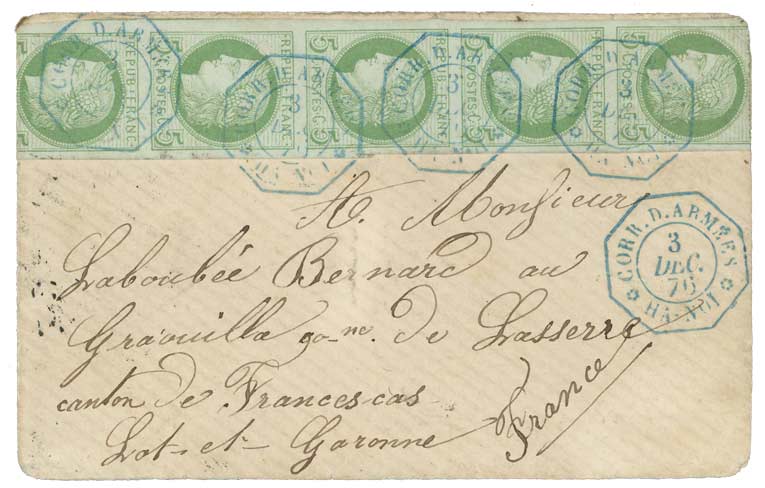 5 POSTES 5 REPUB. FRANC. 5 POSTES 5 REPUB. FRANC. 5 POSTES 5 REPUB. FRANC. 5 POSTES 5 REPUB. FRANC. 5 POSTES 5
CORR. D. ARMÉES
CORR. D. ARMÉES 3 DEC. HA-NOI
CORR. D. ARMÉES 3 HA-NOI
HA-NOI
A Monsieur
CORR. D. ARMÉES
3
DEC.
76
HA-NOI
Laboubée Bernard au
Graouilla de Lasserre
canton de Francescas
Lot-et-Garonne
France